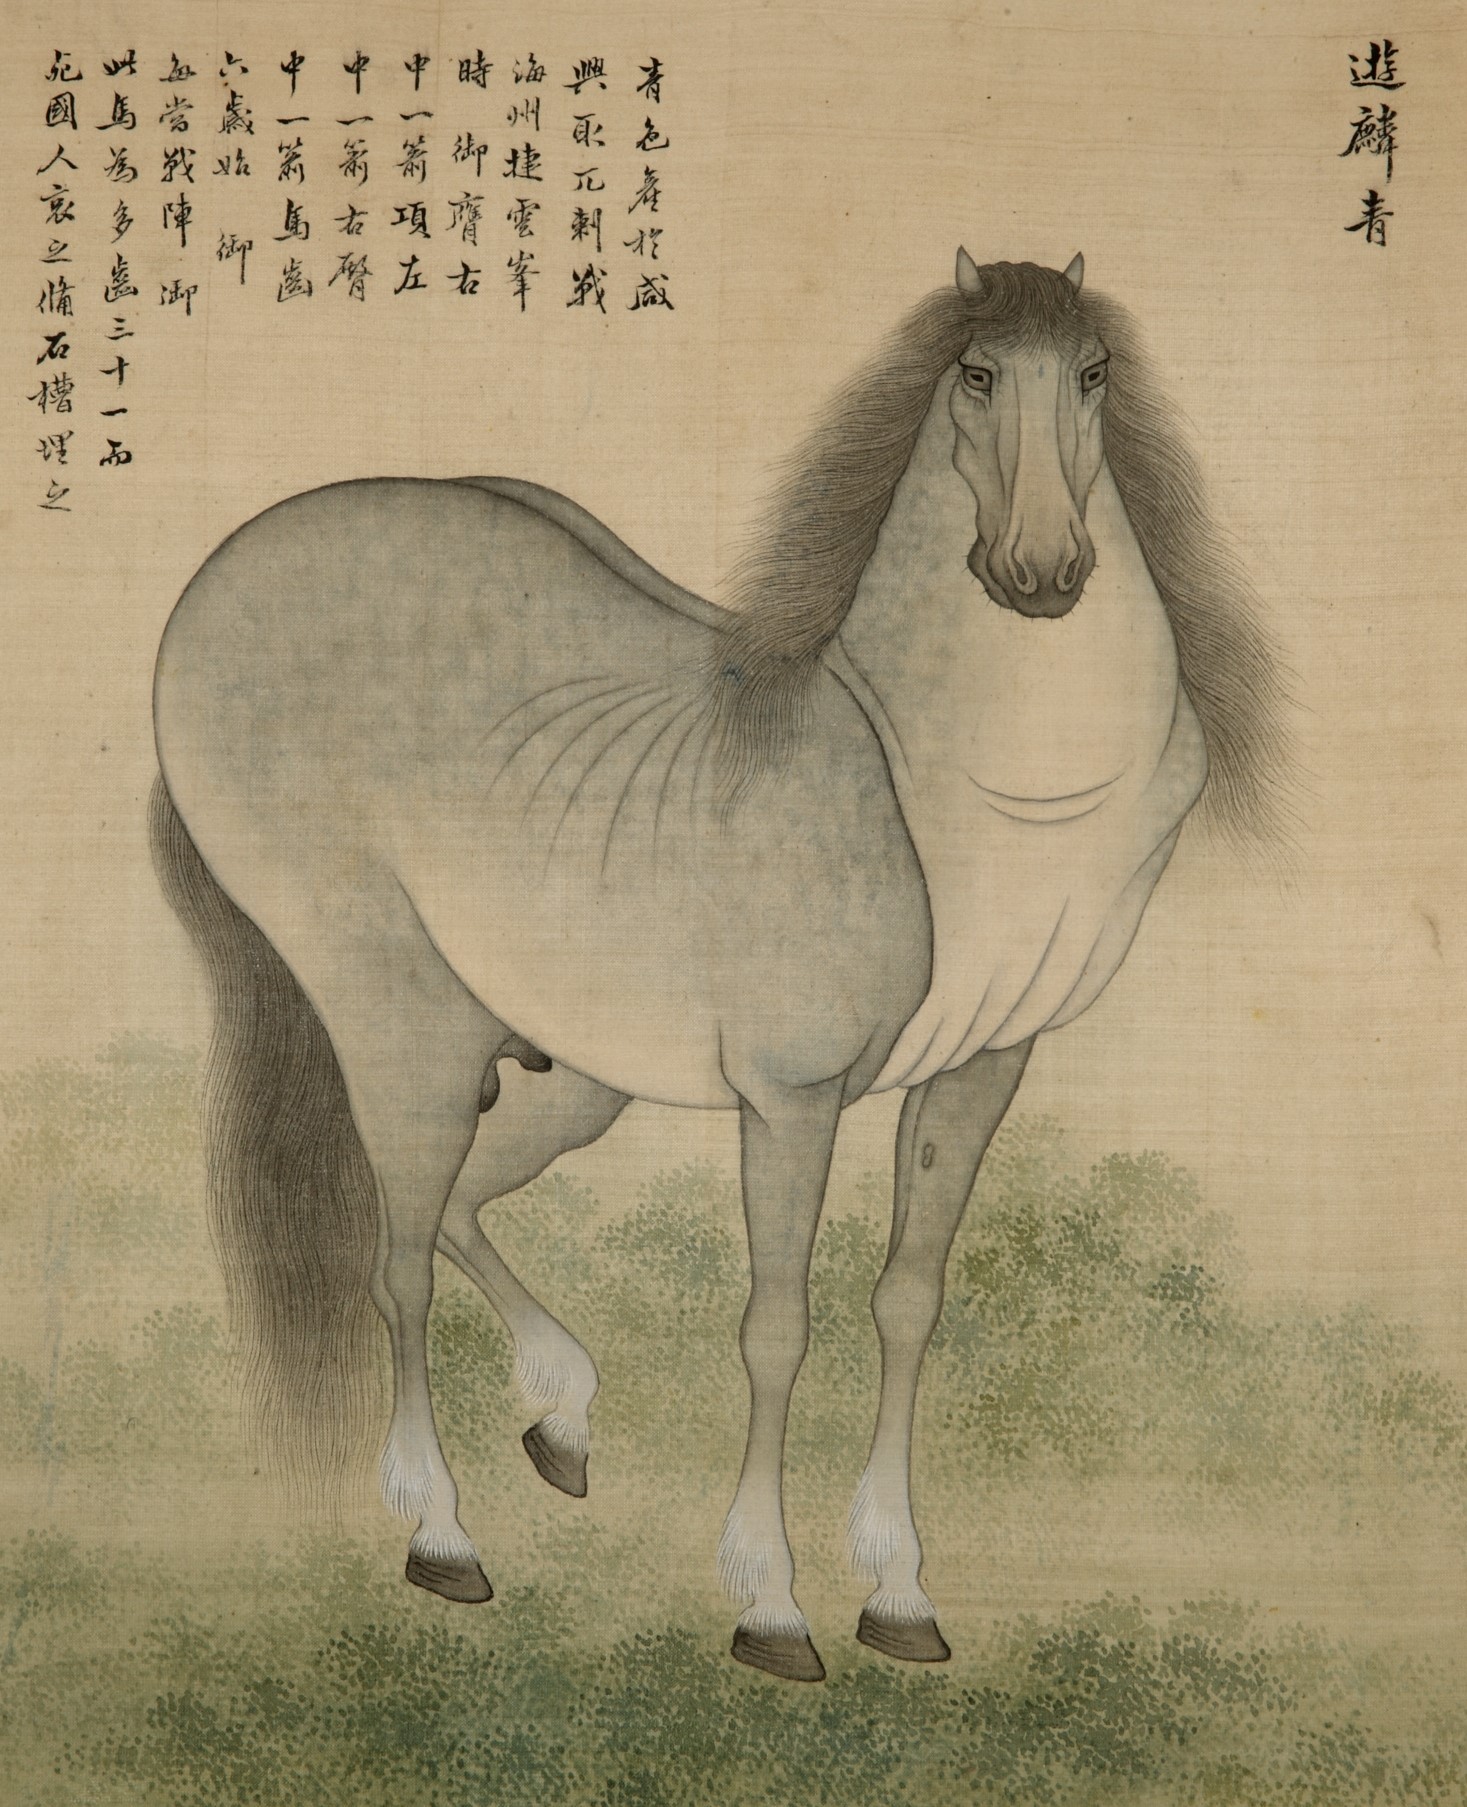 遊麟青
青色產於咸
興取兀剌戰
海州捷雲峯
時 御膺右
中一箭項左
中一箭右臀
中一箭馬齒
六歲始 御
每當戰陣 御
此馬爲多齒三十一而
死國人哀之脩石槽埋之